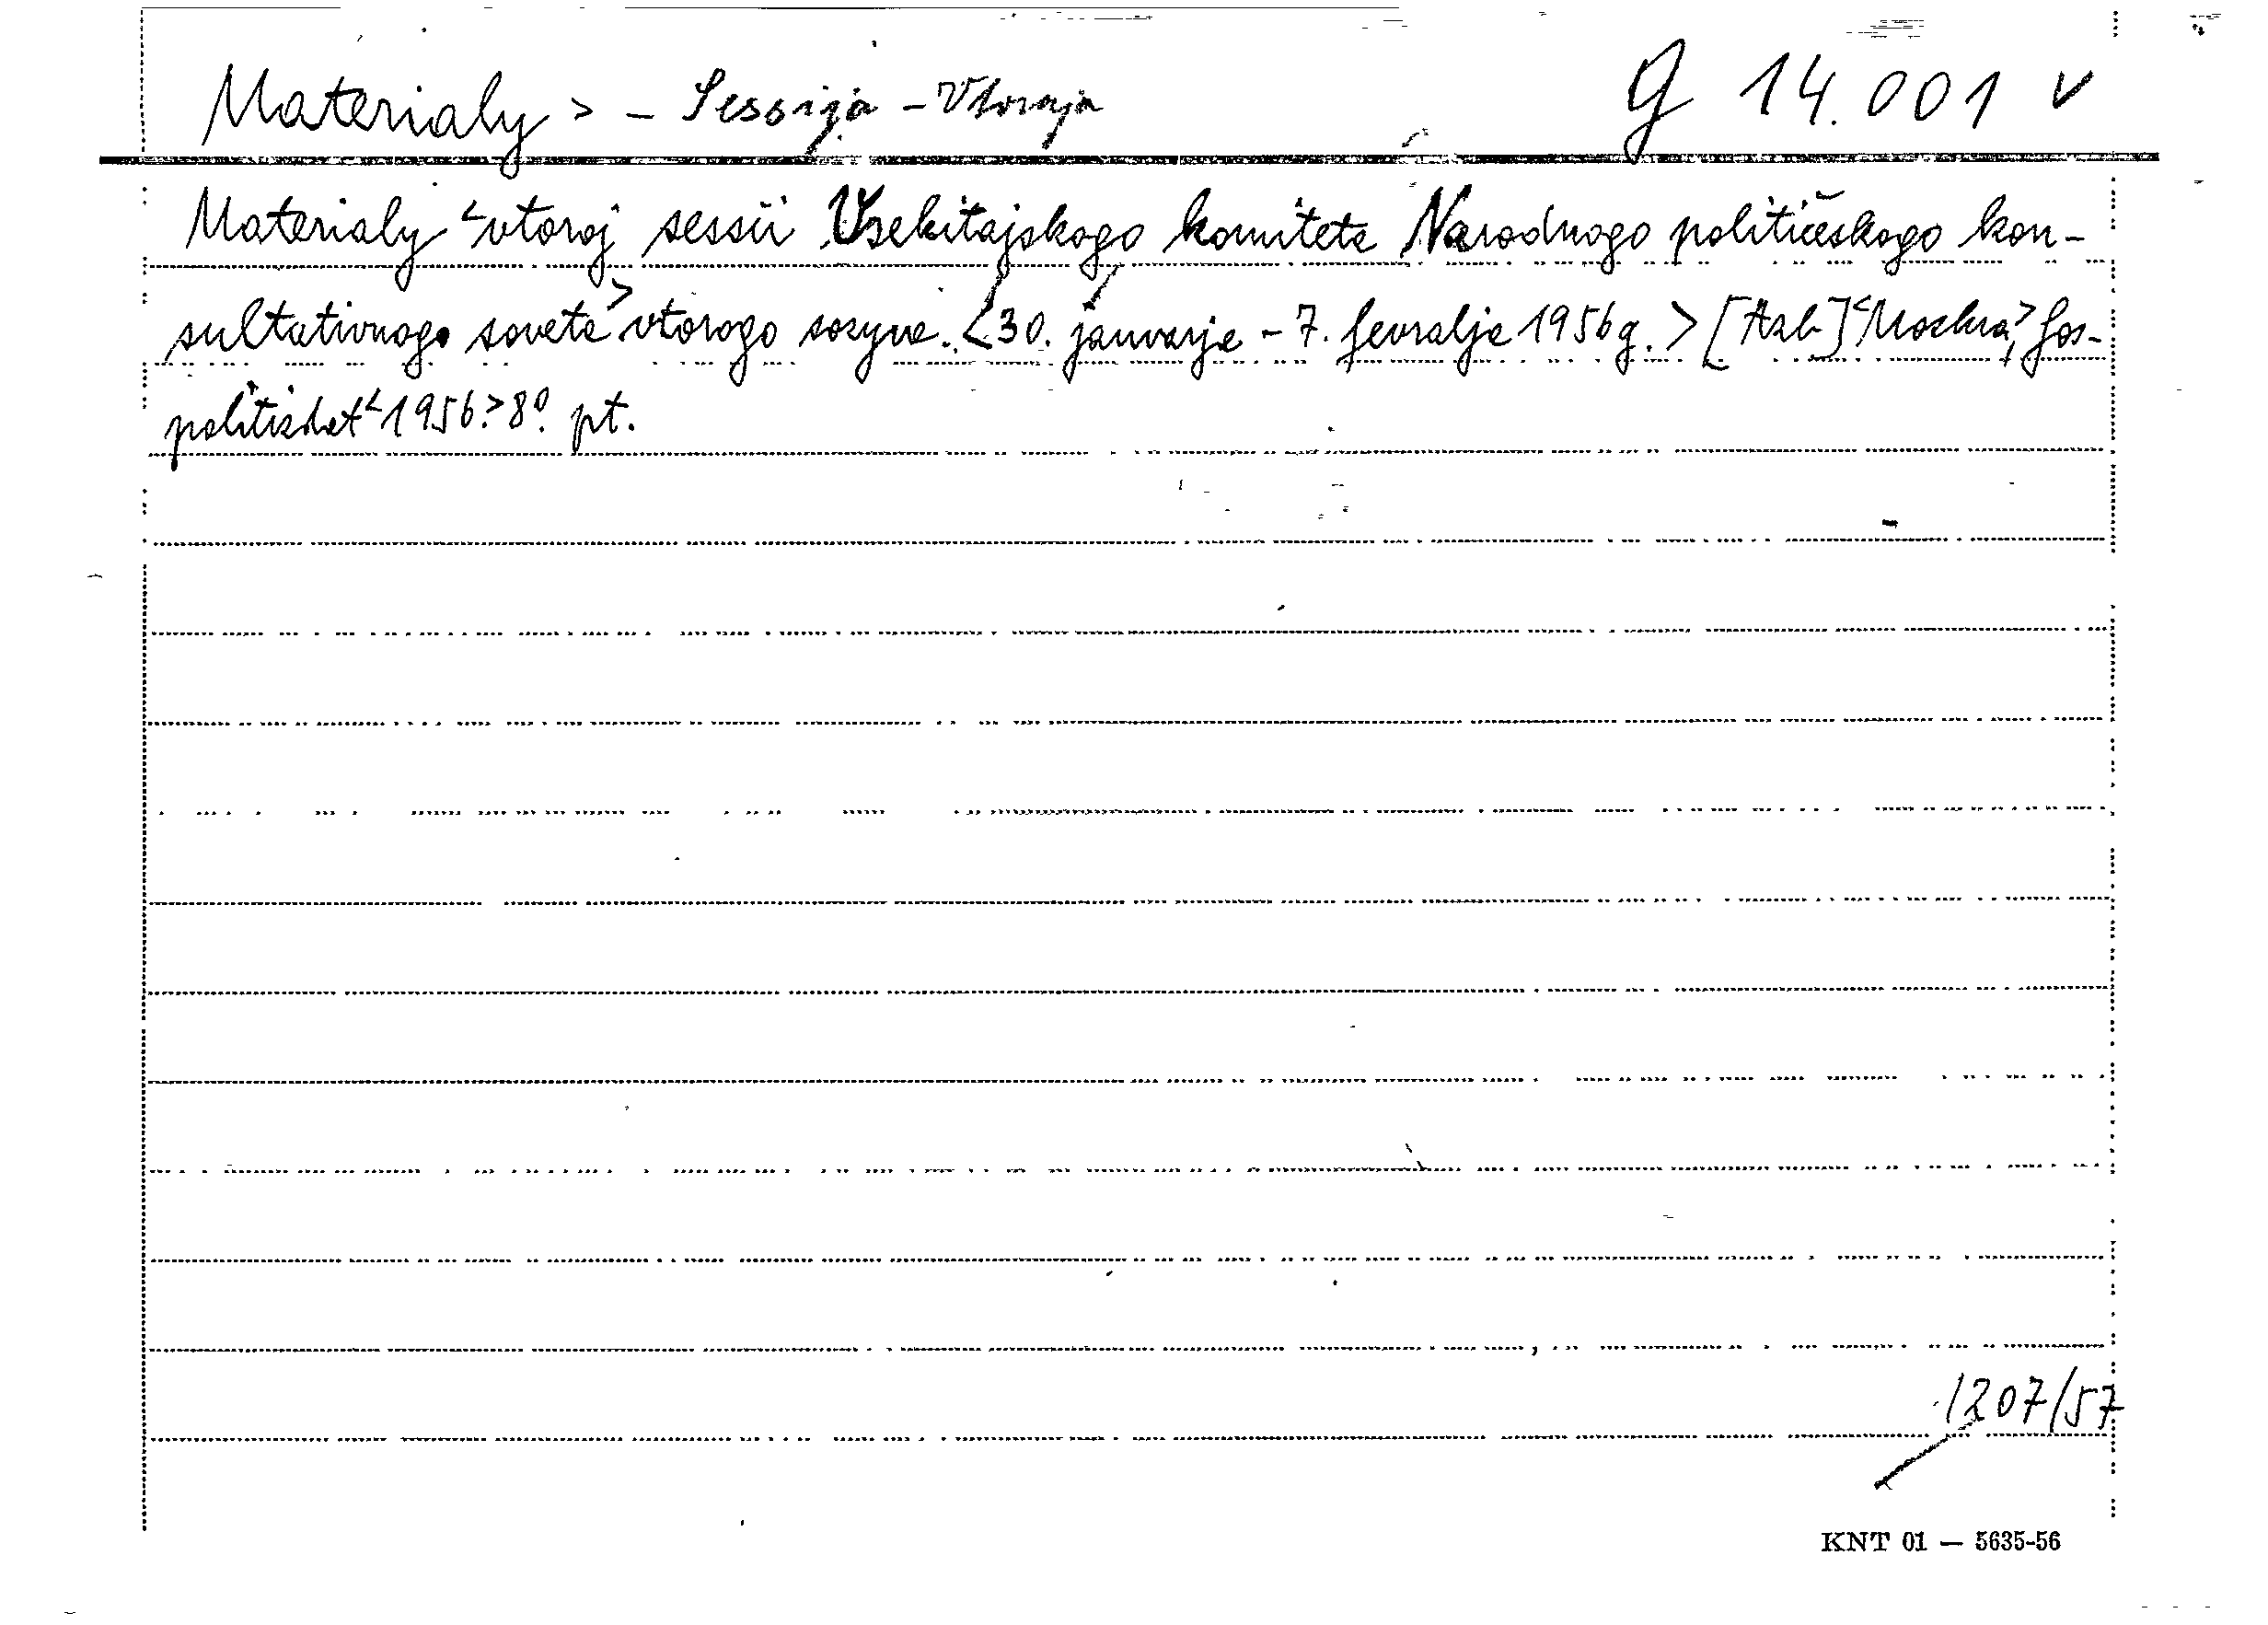 Materialy > – Sessija – Vtoraja g 14.001 v
Materialy <vtoroj sessii Vsekitajskogo komiteta Narodnogo političeskogo kon-
sultativnogo soveta> vtorogo sozyva. <30. janvarja – 7. fevralja 1956 g. > [Azb] <Moskva,> Gos-
politizdat <1956.> 8°. pt.
1207/57
KNT 01 — 5635-56